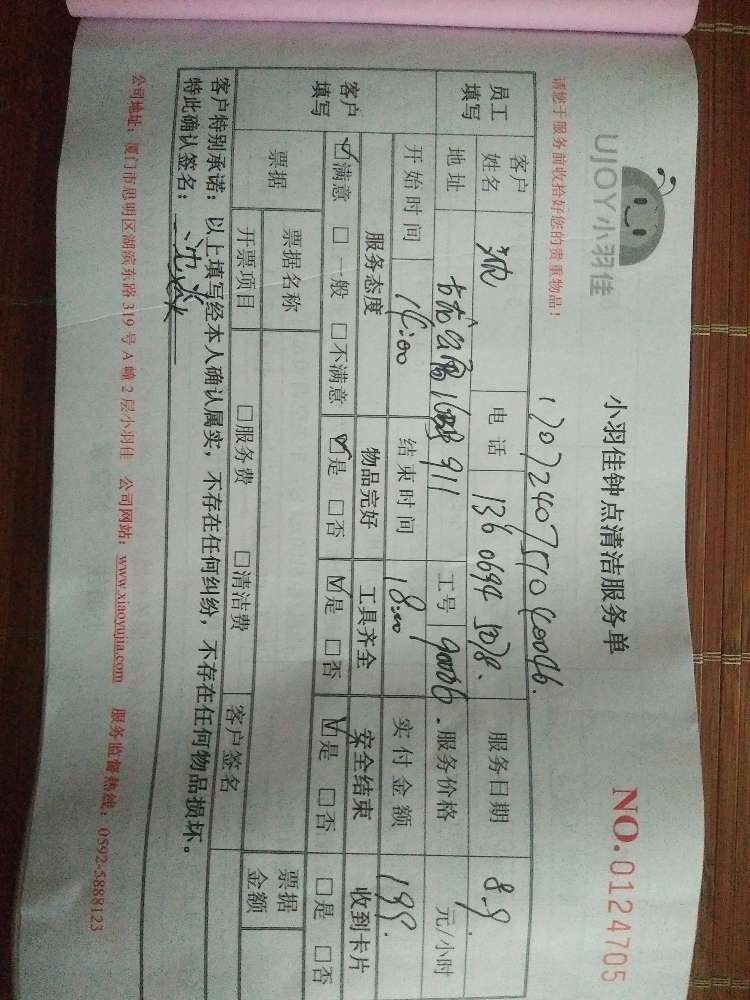 UJOY小羽佳
小羽佳钟点清洁服务单
NO.0124705
请您于服务前收拾好您的贵重物品！
员工填写
客户姓名
电话
136 0694 5078.
服务日期
8.9
地址
911
工号
90006.
服务价格
元/小时
客户填写
开始时间
14:00
结束时间
18:00
实付金额
199.
服务态度
物品完好
工具齐全
安全结束
收到卡片
☑满意 □一般 □不满意
☑是 □否
☑是 □否
☑是 □否
□是 □否
票据
票据名称
开票项目
□服务费 □清洁费
客户签名
票据金额
客户特别承诺：以上填写经本人确认属实，不存在任何纠纷，不存在任何物品损坏。
特此确认签名：
公司地址：厦门市思明区湖滨东路319号A幢2层小羽佳 公司网站：www.xiaoyujia.com 服务监督热线：0592-5888123